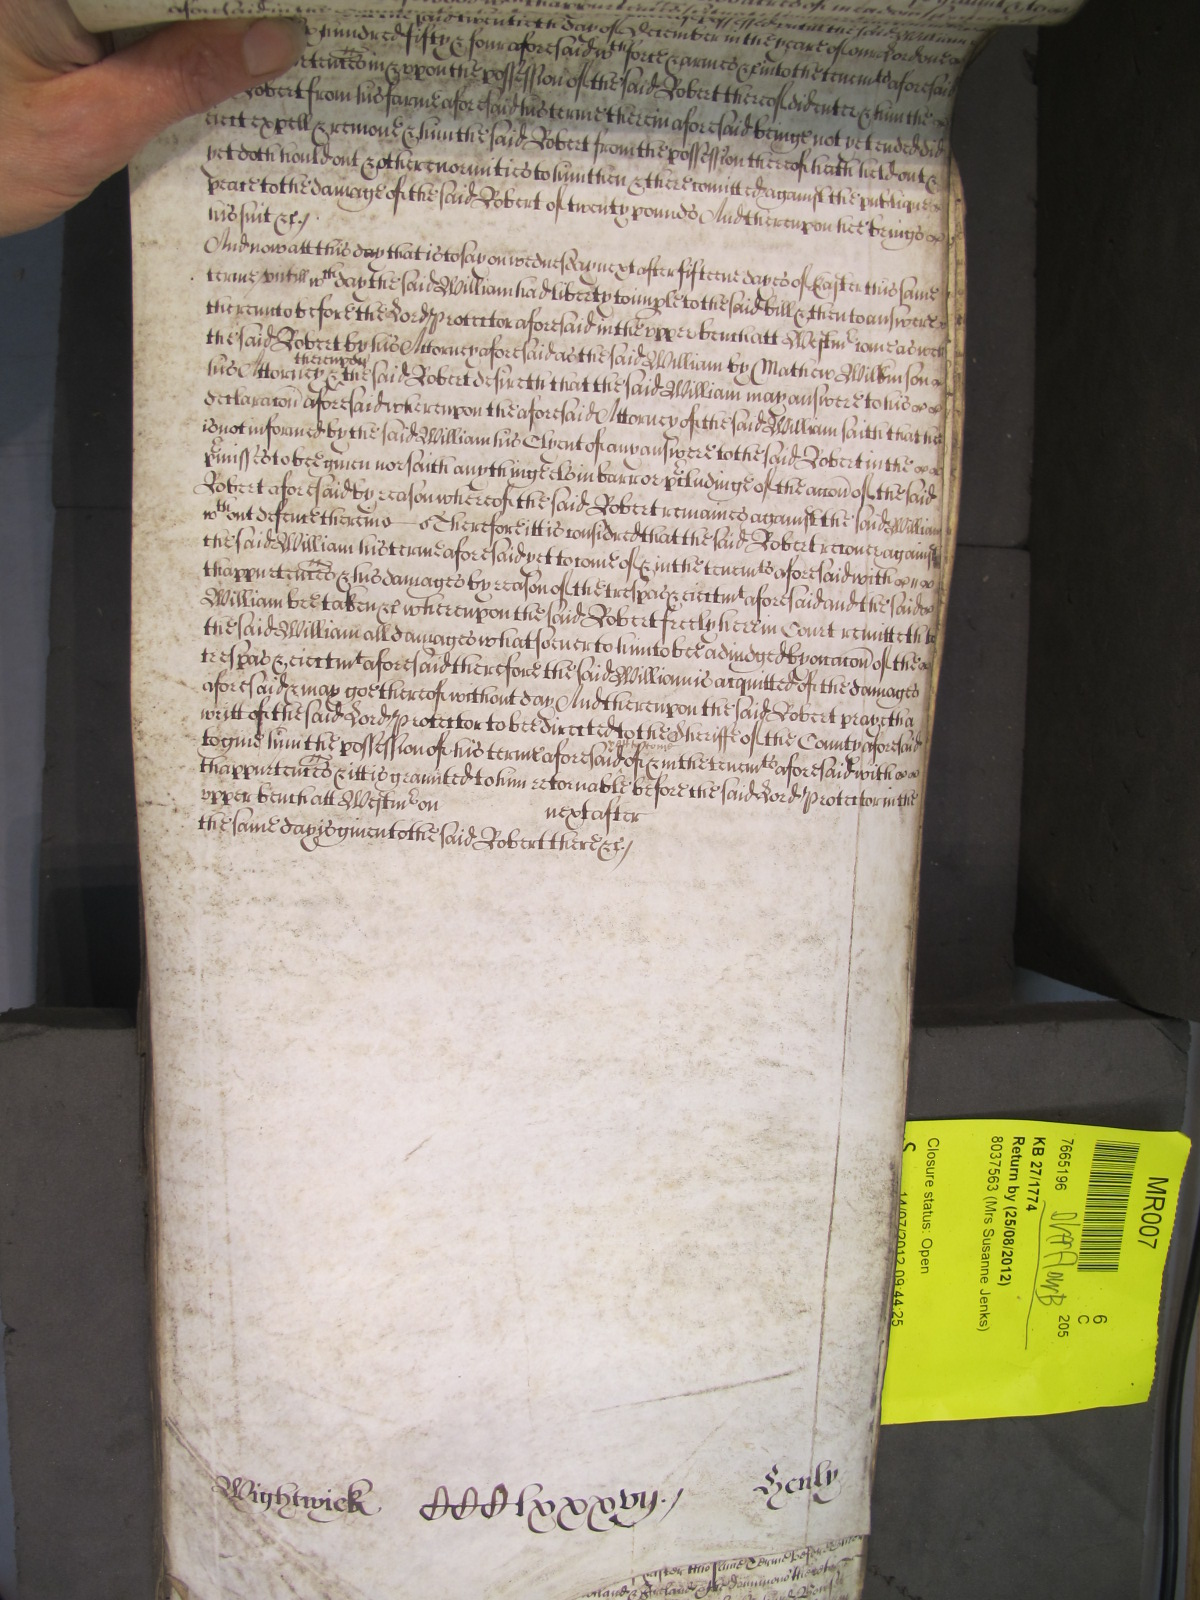 said twentieth day of December in the yeare of our Lord one
hundred fifty & four aforesaid wth force & armes &c into the tenemts aforesaid
in & uppon the possession of the said Robert thereof did enter & him the
Robert from his farme aforesaid his terme therein aforesaid beinge not yet ended did
eiect expell & remove & him the said Robert from the possession thereof hath held out &
yet doth hould out & other enormities to him then & there comitted against the publique
peace to the damage of the said Robert of twenty pounds And thereupon hee brings
his suit &c./
And now att this day that is to say on wednesday next after fifteene dayes of Easter this same
terme untill wch day the said William had liberty to imple to the said bill & then to answere
thereunto before the Lord Protector aforesaid in the upper bench att Westmr come as well
the said Robert by his Attorney aforesaid as the said William by Mathew Wilkinson
his Attorney & thereupon the said Robert desireth that the said William may answere to his
declaracon aforesaid whereupon the aforesaid Attorney of the said William saith that hee
is not informed by the said William his Clyent of any answere to the said Robert in the
pmisses to bee given nor saith any thinge els in barr or pcludinge of the accon of the said
Robert aforesaid by reason whereof the said Robert remaines against the said William
wthout defence therein Therefore itt is considred that the said Robert recover against
the said William his terme aforesaid yet to come of & in the tenemts aforesaid with
thappurtences & his damages by reason of the trespas & eiectmt aforesaid and the said
William bee taken &c whereupon the said Robert freely here in Court remitteth to
the said William all damages whatsoever to him to bee adiudged by occacon of the
trespas & eiectmt aforesaid therefore the said William is acquitted of the damages
aforesaid & may goe thereof without day And thereupon the said Robert prayeth a
writt of the said Lord Protector to bee directed to the Sheriffe of the County aforesaid
to give him the possession of his terme aforesaid yet to come of & in the tenemts aforesaid with
thappurtences & itt is graunted to him retornable before the said Lord Protector in the
upper bench att Westmr on next after
the same day is given to the said Robert there &c./
Wightwick CCClxxxvij./ Henly
MR007
6
C
205
7665196
KB 27/1774
Return by (25/08/2012)
8037563 (Mrs Susanne Jenks)
Closure status: Open
14/07/2012 09:44:25